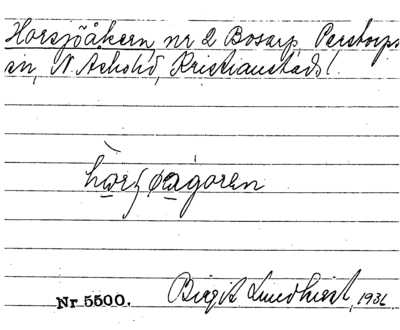 Horsjöåkern, nr 2 Bosarp, Perstorps
sn, N. Åsbo hd, Kristianstads l.
Nr 5500. Birgit Lindkvist, 1936